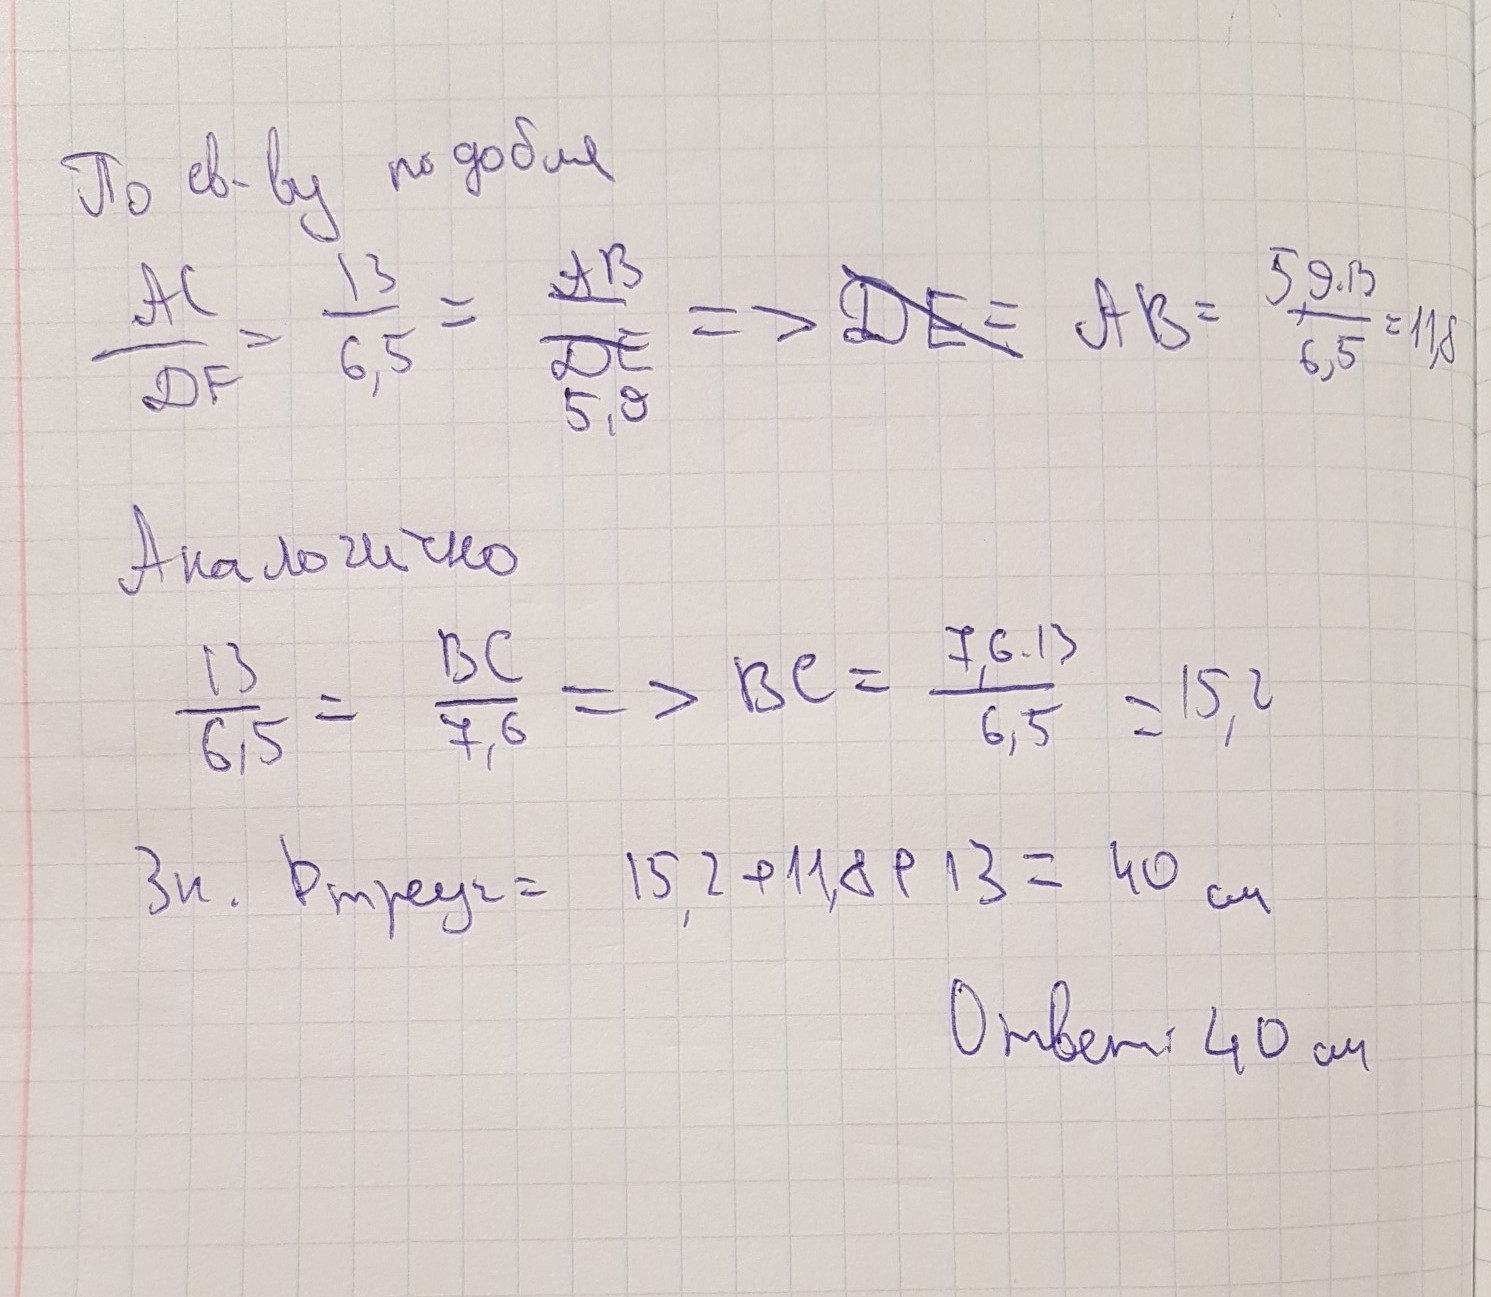 По св-ву подобия
AC/DF = 13/6,5 = AB/DE 5,9 => DE = AB = 5,9·13/6,5 = 11,8
Аналогично
13/6,5 = BC/7,6 => BC = 7,6·13/6,5 = 15,2
Зн. Pтреуг = 15,2+11,8+13 = 40 см
Ответ: 40 см